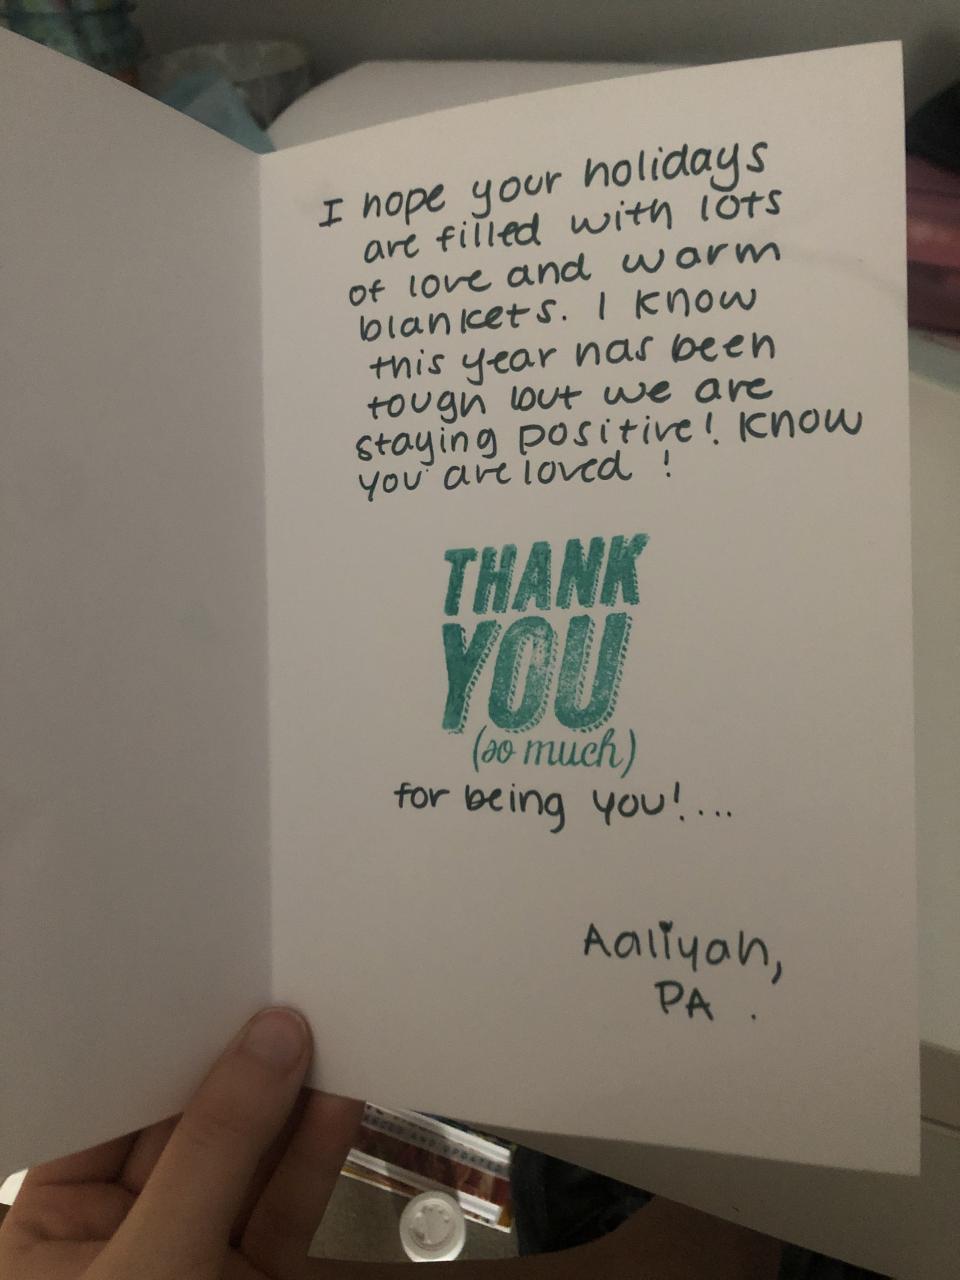 I hope your holidays
are filled with lots
of love and warm
blankets. I know
this year has been
tough but we are
staying positive! Know
you are loved !
THANK
YOU
(so much)
for being you!...
Aaliyah,
PA .
AND UPDATED